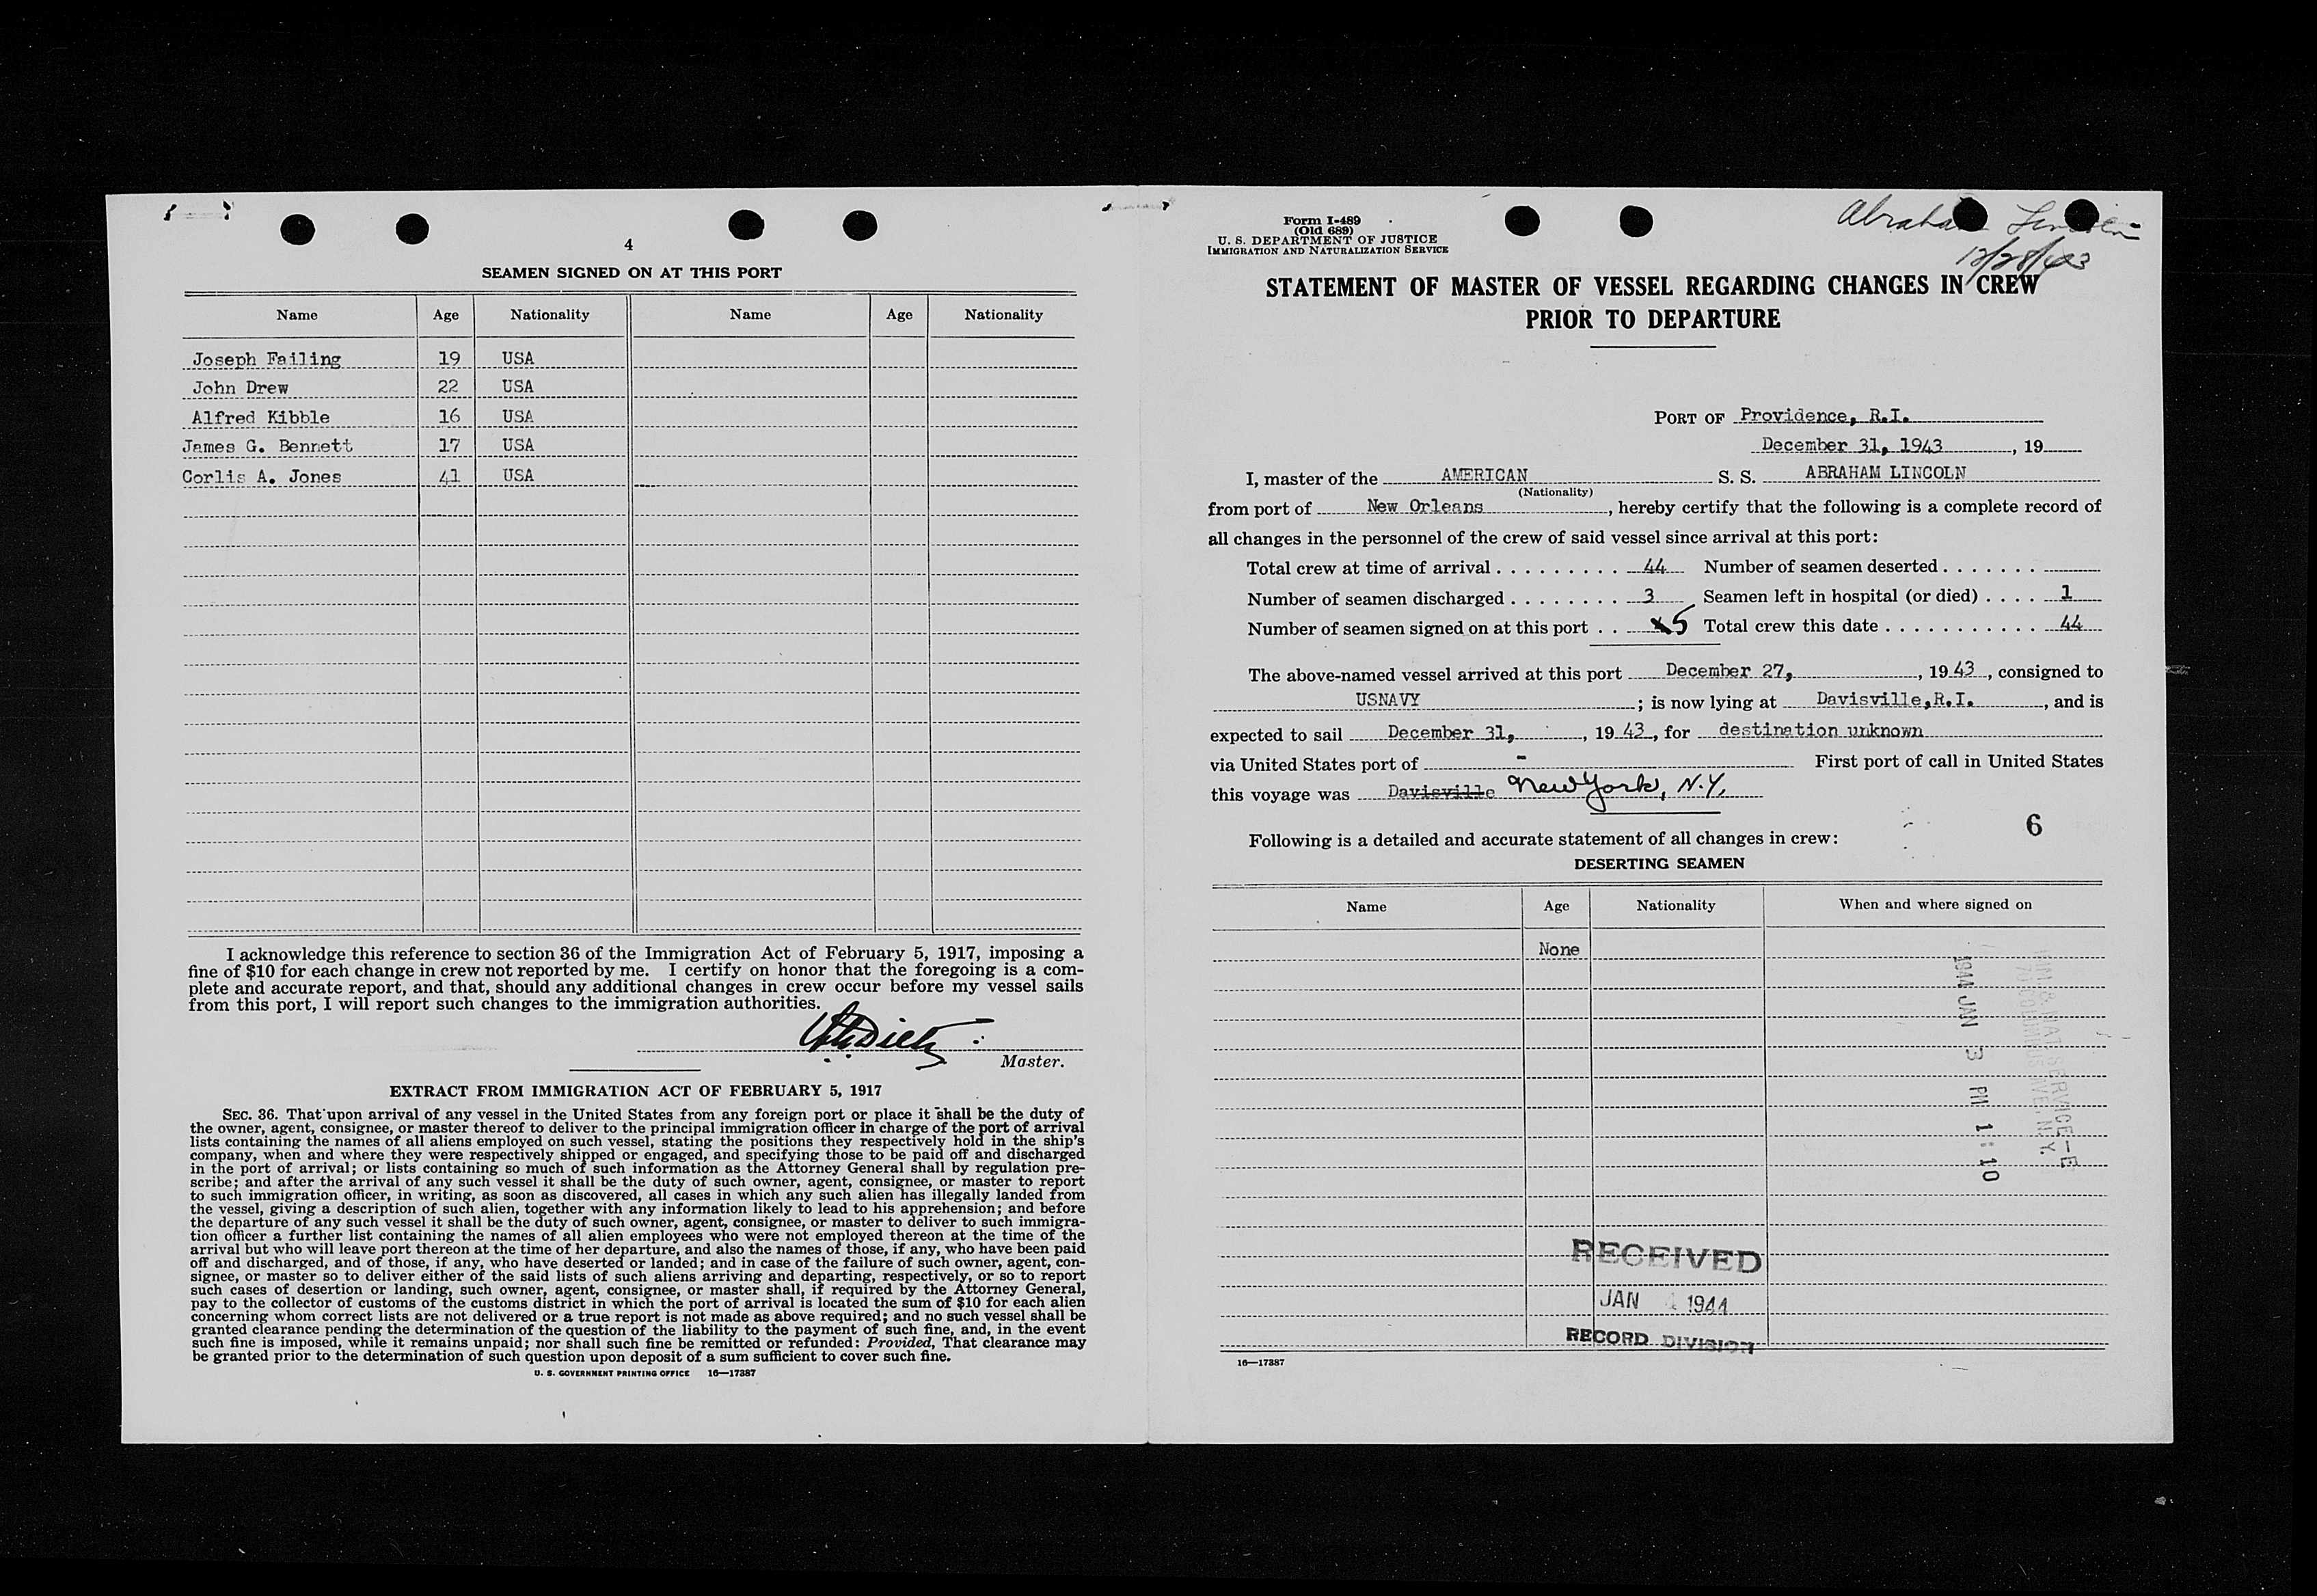 4
SEAMEN SIGNED ON AT THIS PORT
Name Age Nationality Name Age Nationality
Joseph Failing 19 USA
John Drew 22 USA
Alfred Kibble 16 USA
James G. Bennett 17 USA
Corlis A. Jones 41 USA
I acknowledge this reference to section 36 of the Immigration Act of February 5, 1917, imposing a
fine of $10 for each change in crew not reported by me. I certify on honor that the foregoing is a com-
plete and accurate report, and that, should any additional changes in crew occur before my vessel sails
from this port, I will report such changes to the immigration authorities.
Master.
EXTRACT FROM IMMIGRATION ACT OF FEBRUARY 5, 1917
SEC. 36. That upon arrival of any vessel in the United States from any foreign port or place it shall be the duty of
the owner, agent, consignee, or master thereof to deliver to the principal immigration officer in charge of the port of arrival
lists containing the names of all aliens employed on such vessel, stating the positions they respectively hold in the ship's
company, when and where they were respectively shipped or engaged, and specifying those to be paid off and discharged
in the port of arrival; or lists containing so much of such information as the Attorney General shall by regulation pre-
scribe; and after the arrival of any such vessel it shall be the duty of such owner, agent, consignee, or master to report
to such immigration officer, in writing, as soon as discovered, all cases in which any such alien has illegally landed from
the vessel, giving a description of such alien, together with any information likely to lead to his apprehension; and before
the departure of any such vessel it shall be the duty of such owner, agent, consignee, or master to deliver to such immigra-
tion officer a further list containing the names of all alien employees who were not employed thereon at the time of the
arrival but who will leave port thereon at the time of her departure, and also the names of those, if any, who have been paid
off and discharged, and of those, if any, who have deserted or landed; and in case of the failure of such owner, agent, con-
signee, or master so to deliver either of the said lists of such aliens arriving and departing, respectively, or so to report
such cases of desertion or landing, such owner, agent, consignee, or master shall, if required by the Attorney General,
pay to the collector of customs of the customs district in which the port of arrival is located the sum of $10 for each alien
concerning whom correct lists are not delivered or a true report is not made as above required; and no such vessel shall be
granted clearance pending the determination of the question of the liability to the payment of such fine, and, in the event
such fine is imposed, while it remains unpaid; nor shall such fine be remitted or refunded: Provided, That clearance may
be granted prior to the determination of such question upon deposit of a sum sufficient to cover such fine.
U. S. GOVERNMENT PRINTING OFFICE 16—17387
Form I-489
(Old 689)
U. S. DEPARTMENT OF JUSTICE
IMMIGRATION AND NATURALIZATION SERVICE
Abraham Lincoln
12/28/43
STATEMENT OF MASTER OF VESSEL REGARDING CHANGES IN CREW
PRIOR TO DEPARTURE
PORT OF Providence, R.I.
December 31, 1943, 19
I, master of the AMERICAN S. S. ABRAHAM LINCOLN
(Nationality)
from port of New Orleans, hereby certify that the following is a complete record of
all changes in the personnel of the crew of said vessel since arrival at this port:
Total crew at time of arrival . . . . . . . . . 44 Number of seamen deserted . . . . . . .
Number of seamen discharged . . . . . . . . 3 Seamen left in hospital (or died) . . . . 1
Number of seamen signed on at this port . . 5 Total crew this date . . . . . . . . . . . . 44
The above-named vessel arrived at this port December 27, , 19 43, consigned to
USNAVY ; is now lying at Davisville,R.I. , and is
expected to sail December 31, , 19 43, for destination unknown
via United States port of - First port of call in United States
this voyage was Davisville New York, N.Y.
6
Following is a detailed and accurate statement of all changes in crew:
DESERTING SEAMEN
Name Age Nationality When and where signed on
None
1944 JAN 3 PM 1:10
RECEIVED
JAN 1944
RECORD DIVISION
16—17387